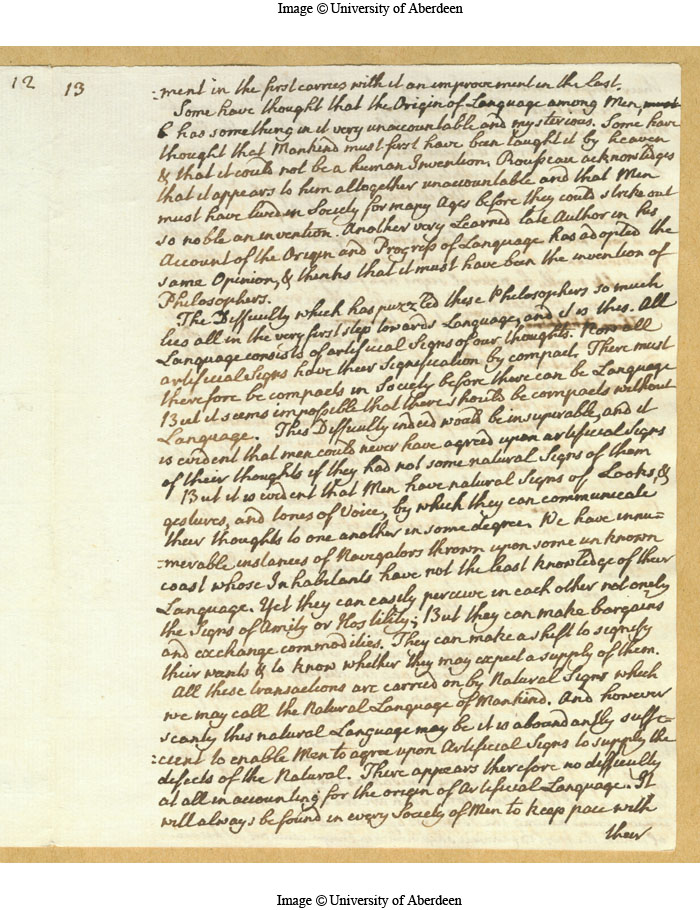 Image © University of Aberdeen
12
13
-ment in the first carries with it an improvement in the last.
Some have thought that the Origin of Language among Men, must
& has something in it very unaccountable and mysterious. Some have
thought that Mankind must first have been taught it by heaven
& that it could not be a human Invention. Rousseau acknowledges
that it appears to him altogether unaccountable and that Men
must have lived in Society for many Ages before they could strike out
so noble an invention. Another very Learned late Author in his
Account of the Origin and Progress of Language has adopted the
same Opinion, & thinks that it must have been the invention of
Philosophers.
The Difficulty which has puzzled these Philosophers so much
lies all in the very first step towards Language, and it is this. All
Language consists of artificial Signs of our thoughts. Now all
artificial Signs have their Signification by compact. There must
therefore be compacts in Society before there can be Language
But it seems impossible that there should be compacts without
Language. This Difficulty indeed would be insuperable, and it
is evident that men could never have agreed upon artificial signs
of their thoughts if they had not some natural Signs of them
But it is evident that Men have natural Signs of Looks, &
gestures, and tones of Voice, by which they can communicate
their thoughts to one another in some degree. We have innu=
=merable instances of Navigators thrown upon some unknown
coast whose Inhabitants have not the least knowledge of their
Language. Yet they can easily perceive in each other not onely
the Signs of Amity or Hostility; But they can make bargains
and exchange commodities. They can make a shift to signify
their wants & to know whether they may expect a supply of them.
All these transactions are carried on by Natural Signs which
we may call the Natural Language of Mankind. And however
scanty this natural Language may be it is aboundantly suffi=
=cient to enable Men to agree upon Artificial Signs to supply the
defects of the Natural. There appears therefore no difficulty
at all in accounting for the origin of Artificial Language. It
will always be found in every Society of Men to keep pace with
their
Image © University of Aberdeen